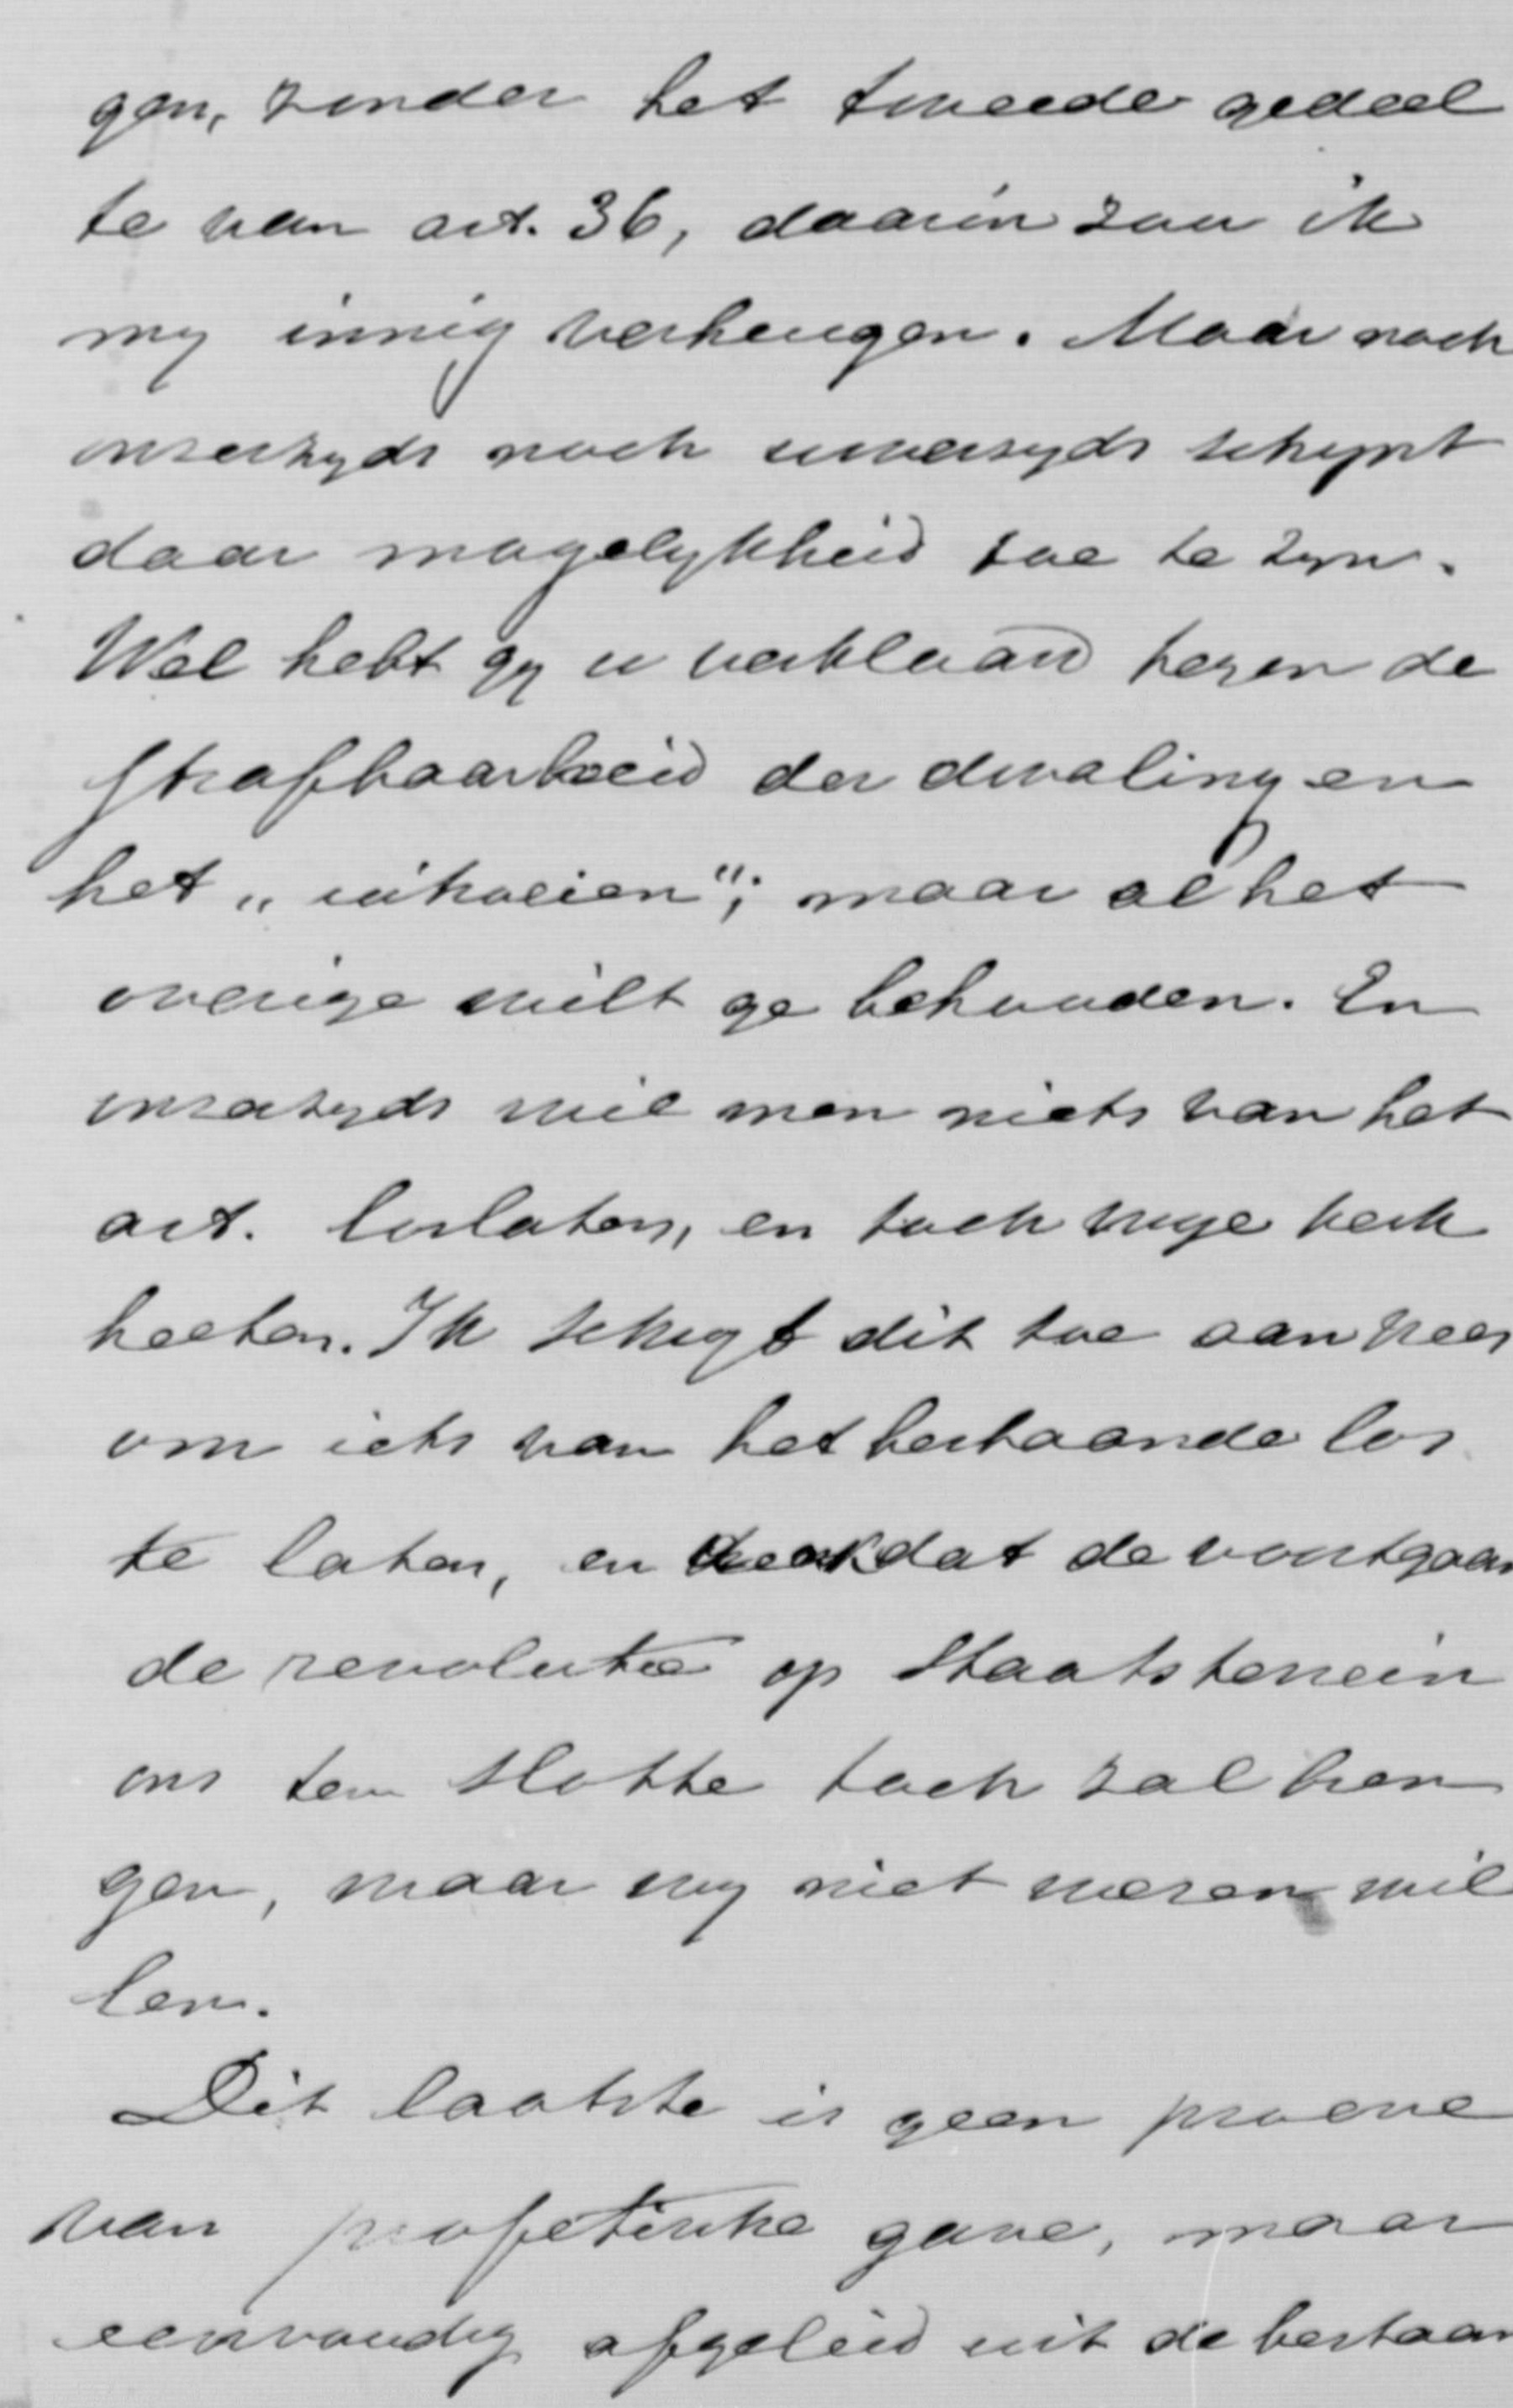 gen, zonder het tweede gedeel
te van art. 36, daarin zou ik
my innig verheugen. Maar noch
onzerzyds noch uwerzyds schynt
daar mogelykheid toe te zyn.
Wel hebt gy u verklaard tegen de
strafbaarheid der dwaling en
het „uitroeien"; maar al het
overige wilt ge behouden. En
onzerzyds wil men niets van het
art. loslaten, en toch vrye kerk
heeten. Ik schryf dit toe aan vrees
om iets van het bestaande los
te laten, en denk dat de voortgaan
de revolutie op Staatsterrein
ons ten slotte toch zal bren
gen, waar wy niet wezen wil
len.
Dit laatste is geen proeve
van profetische gave, maar
eenvoudig afgeleid uit de bestaan